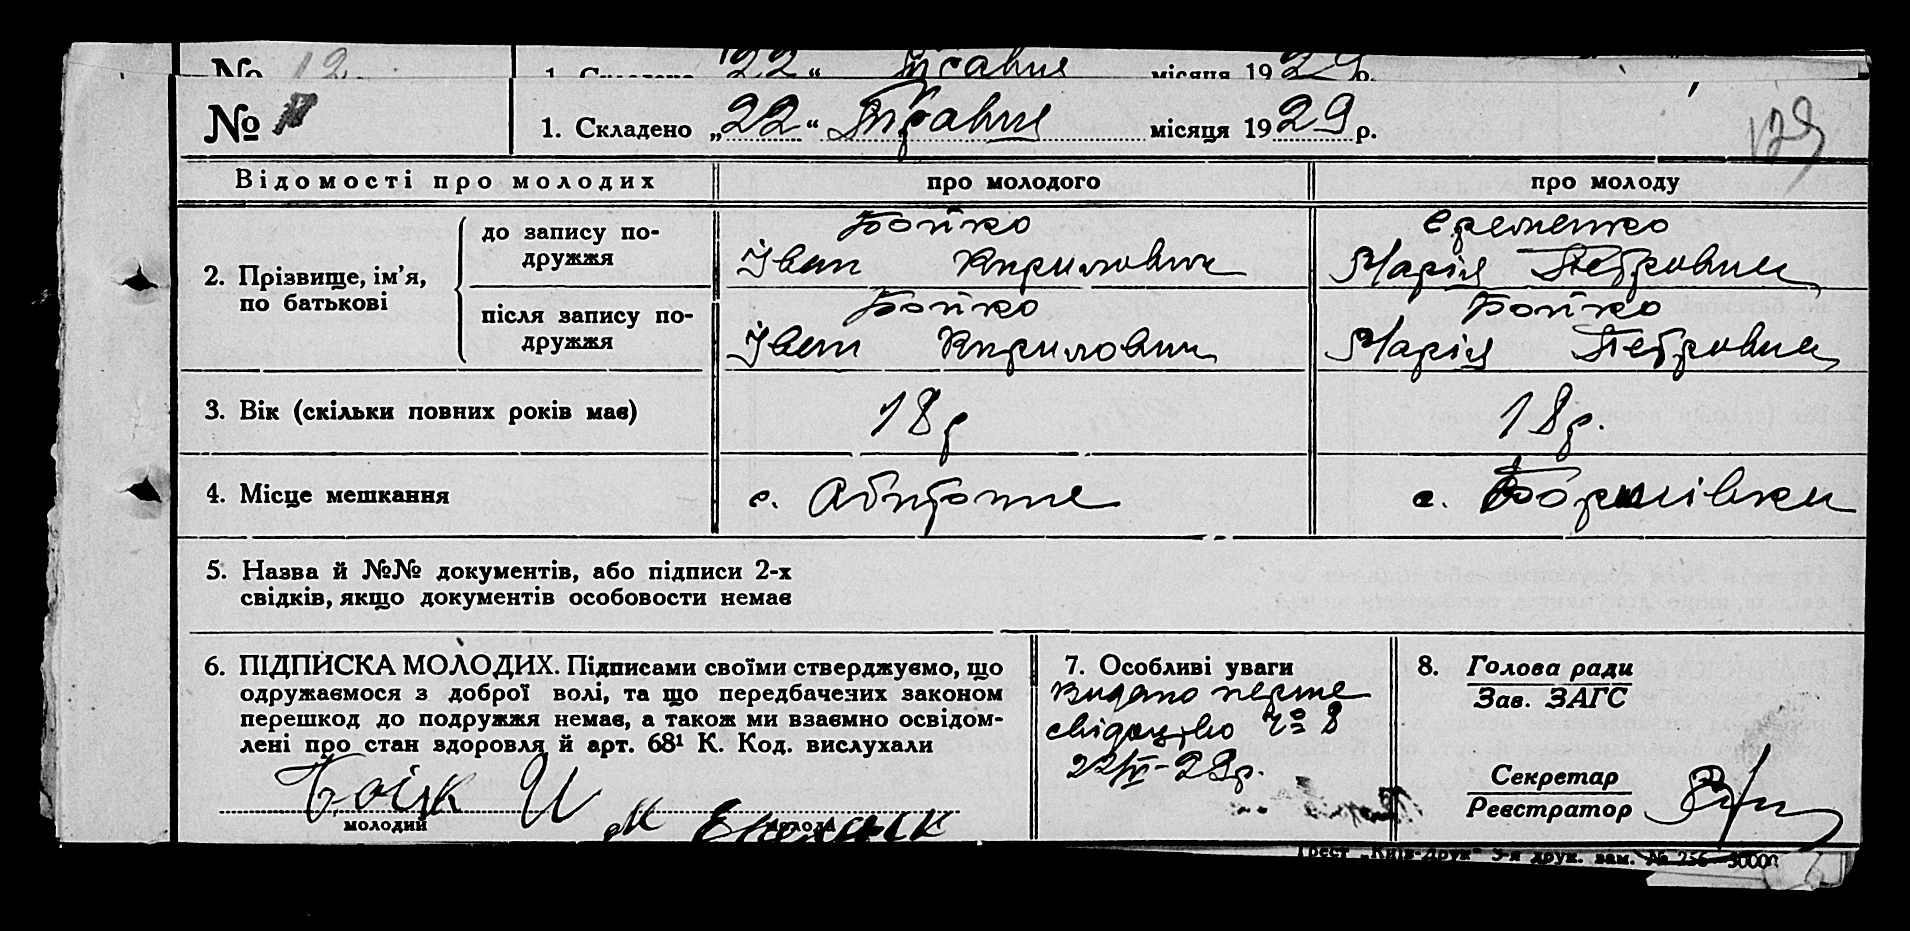 № 12
1. Складено „22“ Травня місяця 1929 р.
№
1. Складено „22“ Травня місяця 1929 р.
129
Відомості про молодих
про молодого
про молоду
2. Прізвище, ім’я,
по батькові
до запису по-
дружжя
Бойко
Іван Кирилович
Єременко
Марія Петровна
після запису по-
дружжя
Бойко
Іван Кирилович
Бойко
Марія Петровна
3. Вік (скільки повних років має)
18 р
18 р.
4. Місце мешкання
с.
с.
5. Назва й №№ документів, або підписи 2-х
свідків, якщо документів особовости немає
6. ПІДПИСКА МОЛОДИХ. Підписами своїми стверджуємо, що
одружаємося з доброї волі, та що передбачених законом
перешкод до подружжя немає, а також ми взаємно освідом-
лені про стан здоровля й арт. 68¹ К. Код. вислухали
молодий
молода
7. Особливі уваги
Видано перше
свідоцтво № 8
22/V-29р.
8. Голова ради
Зав. ЗАГС
Секретар
Реєстратор
Трест „Київ-Друк“ 3-я друк. зам. № 256—30000